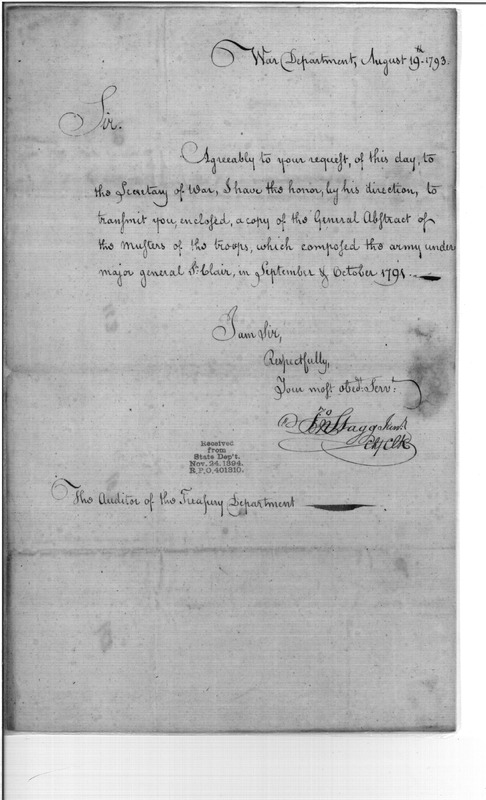 War Department, August 19th 1793.
Sir.
Agreeably to your request, of this day, to
the Secretary of War, I have the honor, by his direction, to
transmit you, enclosed, a copy of the General Abstract of
the musters of the troops, which composed the army under
major general St. Clair, in September & October 1791.
I am Sir,
Respectfully,
Your most obedt. Servt.
Jno Stagg Junr.
Ch. Clk
Received
from
State Dep't.
Nov. 24. 1894.
R. P. O. 401310.
The Auditor of the Treasury Department